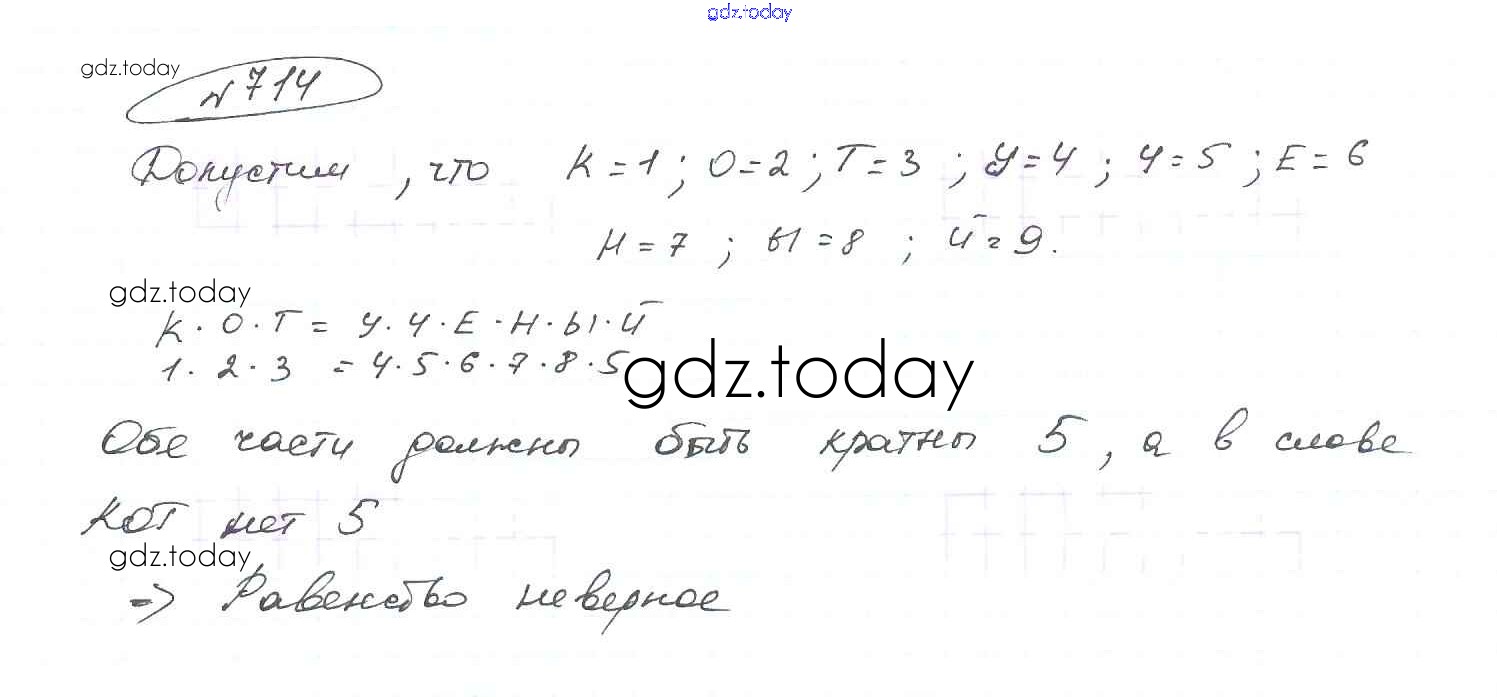 gdz.today
gdz.today
№714
Допустим, что К=1; О=2; Т=3; У=4; Ч=5; Е=6
Н=7; Ы=8; Й=9.
gdz.today
К·О·Т = У·Ч·Е·Н·Ы·Й
1·2·3 = 4·5·6·7·8·5
gdz.today
Обе части должны быть кратны 5, а в слове
КОТ нет 5
gdz.today
=> Равенство неверное